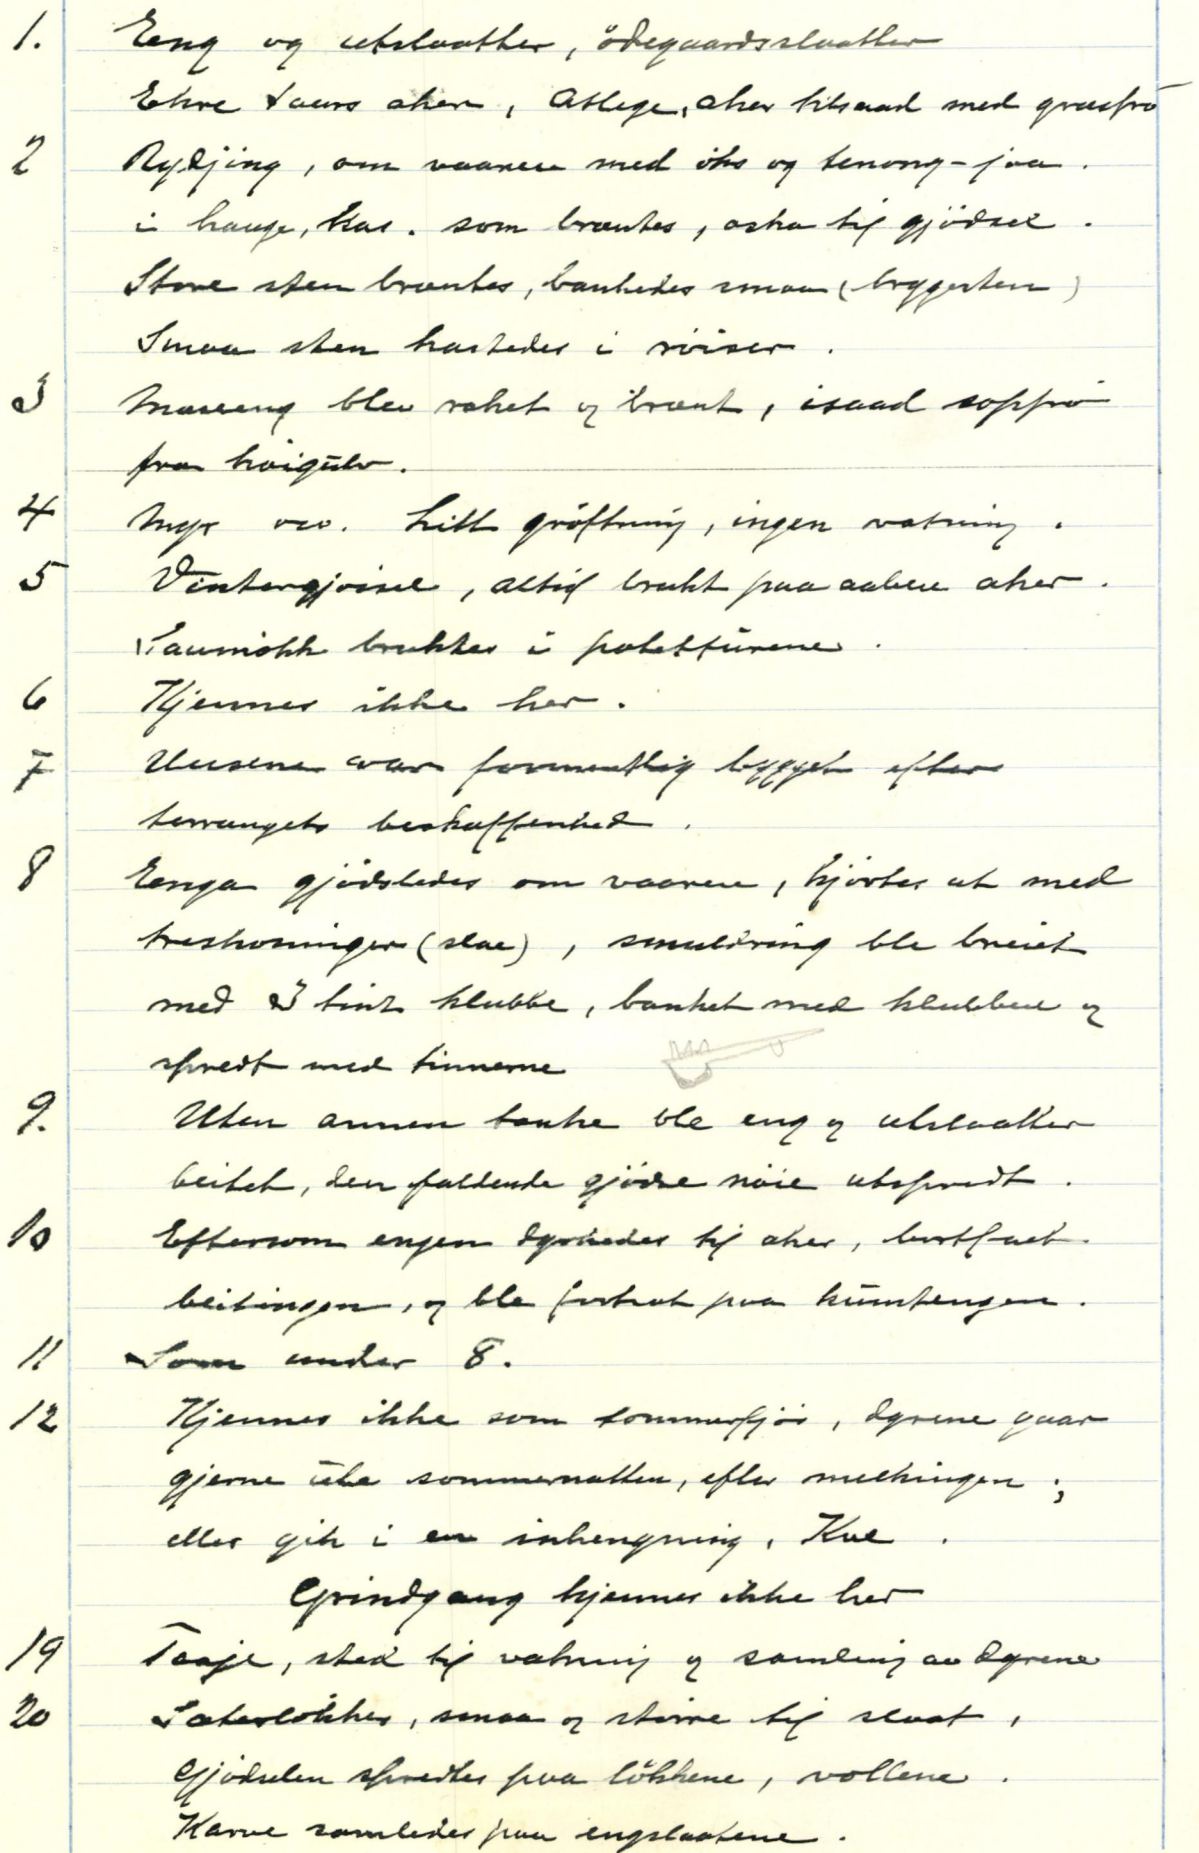 1. Eeng og utslaatter, ödegaardsslaatter
Ekre saars aker, Atlege, aker tilsaad med græsfrö
2 Rydjing, om vaaren med öks og tenong - jaa.
i hauge, kas. som brændtes, aska til gjödsel.
Store sten brændtes, bankedes smaa (bryggesten)
Smaa sten kastedes i röiser.
3 Maseeng blev raket og brænt, isaad soppfrö
fra höigulv.
4 Myr ovv. Litt gröftning, ingen vatning.
5 Vintergjösel, altid brukt paa aaben aker.
Saumökk bruktes i potetfurene.
6 Kjennes ikke her.
7 Husene var formentlig bygget efter
terrængets beskaffenhed.
8 Eenga gjödsledes om vaaren, kjörtes ut med
treskoninger (slae), smuldring ble breiet
med 3 tint klubbe, banket med klubben og
spredt med tinnerne
9. Uten annen tanke ble eng og utslaatter
beitet, den faldende gjödse nöie utspredt.
10 Eftersom engen dyrkedes til aker, bortfaldt
beitingen, og ble fortsat paa
11 Som under 8.
12 Kjennes ikke som sommerfjös, dyrene gaar
gjerne ute sommernatten, efter melkingen;
eller gik i en inhengning, Kve.
Grindgang kjennes ikke her
19 Taaje, sted til vatning og samling av dyrene
20 Sæterlökker, smaa og större til slaat,
Gjödselen spredtes paa lökkene, vollene.
Karve samledes paa engslaatene.